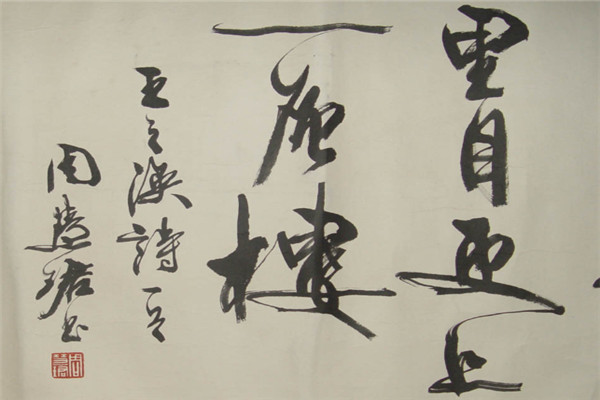 里目更上
一層樓
王之渙詩一首
周慧珺书